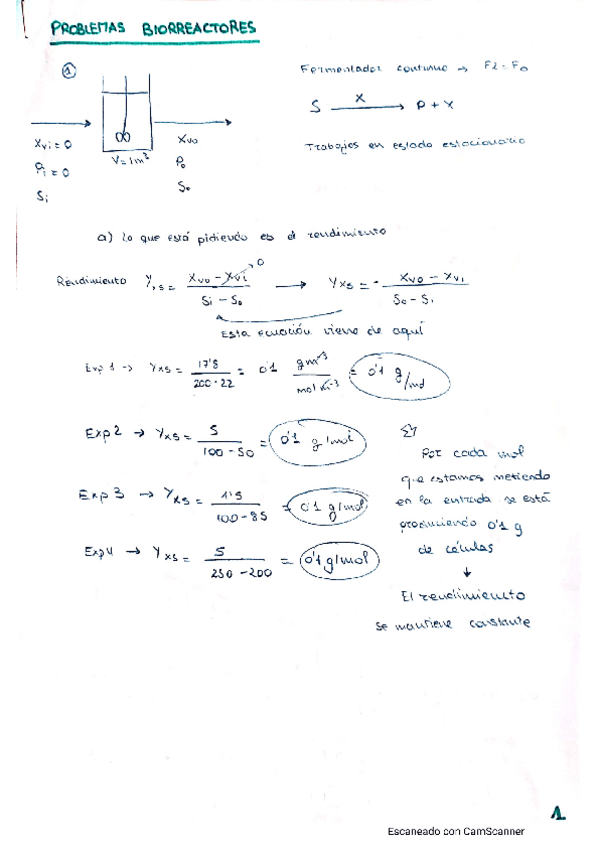 PROBLEMAS BIORREACTORES
① Fermentador continuo → F2 = F0
S X→ P + X
Trabajos en estado estacionario
Xvi = 0
Pi = 0
Si
V = 1m³
Xvo
Po
So
a) Lo que está pidiendo es el rendimiento
Rendimiento Yxs = Xvo - Xvi / Si - So → Yxs = - Xvo - Xvi / So - Si
0
Esta ecuación viene de aquí
Exp 1 → Yxs = 17'8 / 200-22 = 0'1 g m⁻³ / mol m⁻³ = 0'1 g/mol
Exp 2 → Yxs = 5 / 100-50 = 0'1 g/mol
Exp 3 → Yxs = 1'5 / 100-85 = 0'1 g/mol
Exp 4 → Yxs = 5 / 250-200 = 0'1 g/mol
Por cada mol
que estamos metiendo
en la entrada se está
produciendo 0'1 g
de células
↓
El rendimiento
se mantiene constante
1.
Escaneado con CamScanner